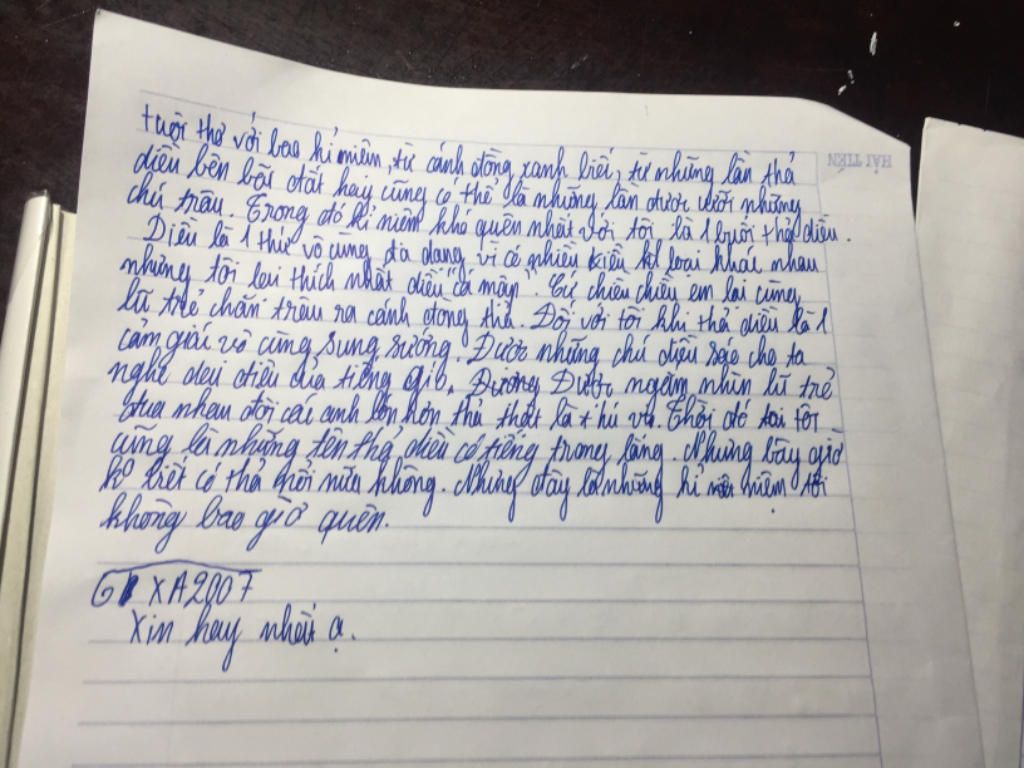 tuổi thơ với bao kỉ niệm, từ cánh đồng xanh biếc, từ những lần thả
diều bên bãi đất hay cũng có thể là những lần được cưỡi những
chú trâu. Trong đó kỉ niệm khó quên nhất với tôi là 1 buổi thả diều.
Diều là 1 thứ vô cùng đa dạng vì có nhiều kiểu loại khác nhau
nhưng tôi thích nhất diều "cá mập". Cứ chiều chiều em lại cùng
lũ trẻ chăn trâu ra cánh đồng thả. Đối với tôi khi thả diều là 1
cảm giác vô cùng sung sướng. Được những chú diều sáo cho ta
nghe điệu của tiếng gió. Được ngắm nhìn lũ trẻ
đua nhau đợi các anh lớn hơn thả thật là thú vị. Thời đó tôi
cũng là những tên thả diều có tiếng trong làng. Nhưng bây giờ
ko biết có thả giỏi nữa không. Nhưng đây là những kỉ niệm tôi
không bao giờ quên.
XA2007
Xin hay nhất ạ.
HẢI TIẾN